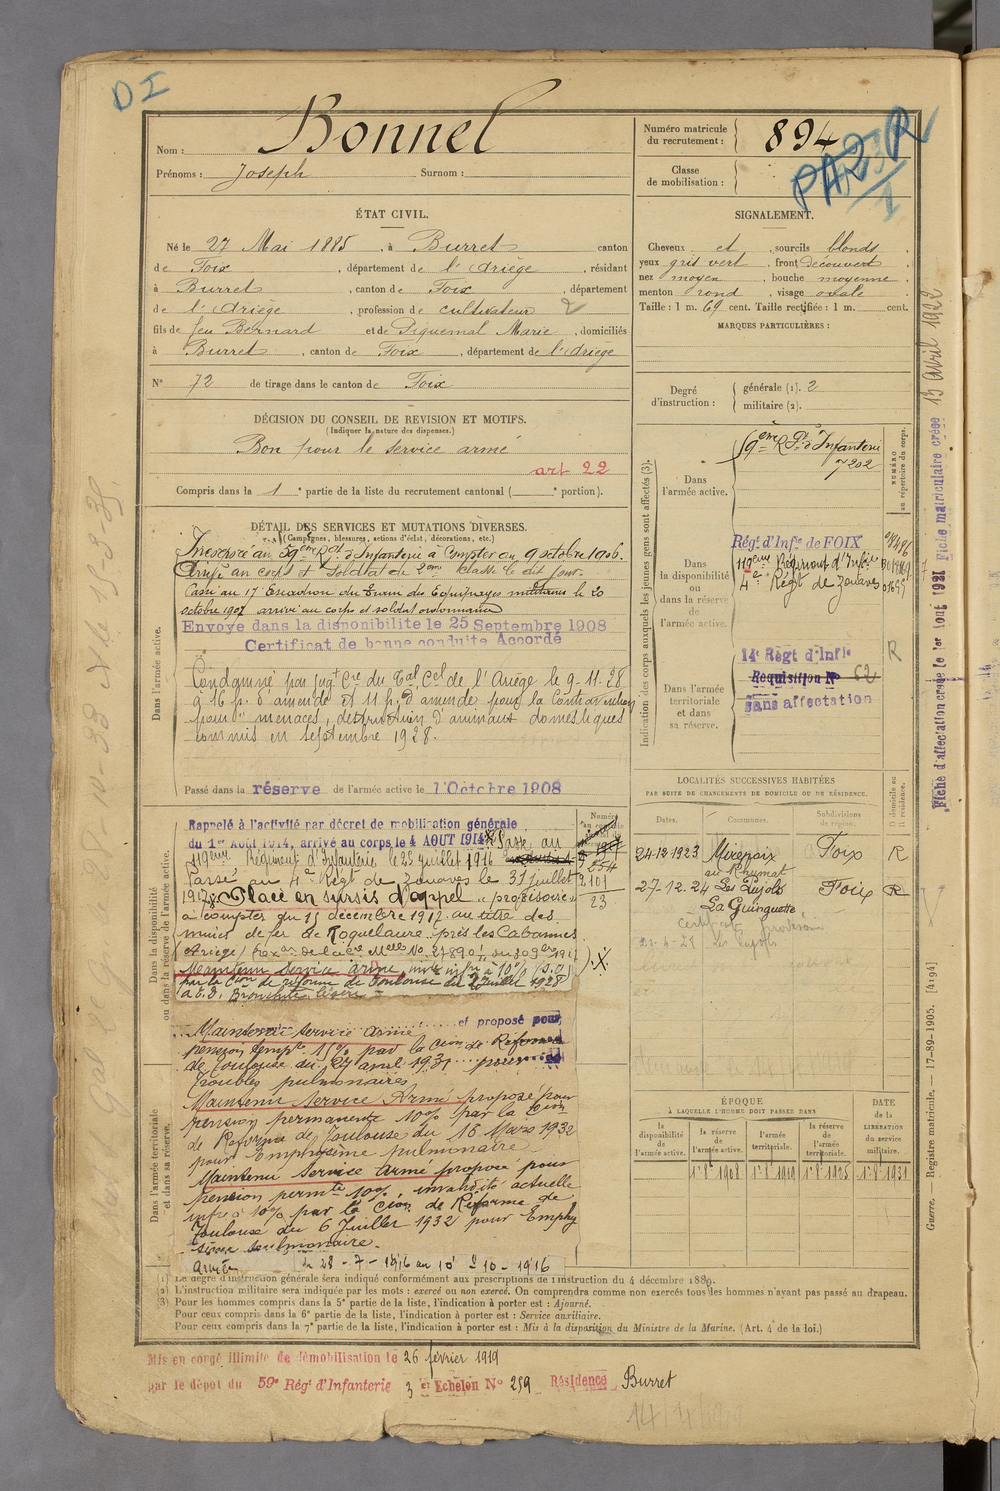 DI
Nom : Bonnel
Prénoms : Joseph Surnom :
Numéro matricule du recrutement : 894
Classe de mobilisation :
ÉTAT CIVIL.
Né le 27 Mai 1885, à Burret canton
de Foix, département de l'Ariège, résidant
à Burret, canton de Foix, département
de l'Ariège, profession de cultivateur
fils de feu Bernard et de Piquemal Marie, domiciliés
à Burret, canton de Foix, département de l'Ariège
N° 72 de tirage dans le canton de Foix
SIGNALEMENT.
Cheveux et, sourcils blonds
yeux gris vert, front découvert
nez moyen, bouche moyenne
menton rond, visage ovale
Taille : 1 m. 69 cent. Taille rectifiée : 1 m. cent.
MARQUES PARTICULIÈRES :
Degré d'instruction :
générale (1). 2
militaire (2).
DÉCISION DU CONSEIL DE REVISION ET MOTIFS.
(Indiquer la nature des dispenses.)
Bon pour le service armé
art 22
Compris dans la 1e partie de la liste du recrutement cantonal ( e portion).
DÉTAIL DES SERVICES ET MUTATIONS DIVERSES.
(Campagnes, blessures, actions d'éclat, décorations, etc.)
Dans l'armée active.
Incorporé au 59eme Rgt d'Infanterie à compter du 9 octobre 1906.
Arrivé au corps et soldat de 2eme classe le dit jour.
Passé au 17 Escadron du Train des Equipages militaires le 20
octobre 1907 arrivé au corps et soldat ordonnance
Envoyé dans la disponibilité le 25 Septembre 1908
Certificat de bonne conduite Accordé
Condamné par jugt Cre du Tal Cel de l'Ariège le 9-11-28
à 16 f. d'amende et 11 f. d'amende pour la contravention
pour "menaces, destruction d'animaux domestiques
commis en septembre 1928.
Passé dans la réserve de l'armée active le 1 Octobre 1908
Dans la disponibilité ou dans la réserve de l'armée active.
Rappelé à l'activité par décret de mobilisation générale
du 1er Août 1914, arrivé au corps le 4 AOUT 1914 Passé au
119eme Régiment d'Infanterie le 25 juillet 1916
Passé au 4e Régt de Zouaves le 31 juillet
Placé en sursis d'appel "provisoire"
à compter du 15 décembre 1917 au titre des
mines de fer de Roquelaure près les Cabannes
Maintenu service armé invté infre à 10%
par la Cion de réforme de Toulouse du 2 juillet 1928
Bronchite légère
Maintenu service armé et proposé pour
pension tempre 15% par la Cion de Réforme
de Toulouse du 27 avril 1931 pour
troubles pulmonaires
Dans l'armée territoriale et dans sa réserve.
Maintenu service Armé proposé pour
pension permanente 10% par la Cion
de Réforme de Toulouse du 16 Mars 1932
pour Emphysème pulmonaire
Maintenu service armé proposé pour
pension permte 10% invalidité actuelle
infre à 10% par la Cion de Réforme de
Toulouse du 6 Juillet 1932 pour Emphy
sème pulmonaire.
Armée
du 28 - 7 - 1916 au 10 - 10 - 1916
Indication des corps auxquels les jeunes gens sont affectés (3).
NUMÉRO au répertoire du corps.
Dans l'armée active.
59eme Rgt d'Infanterie
Dans la disponibilité ou dans la réserve de l'armée active.
Régt d'Infie de FOIX
119eme Régiment d'Infie
4e Régt de Zouaves
Dans l'armée territoriale et dans sa réserve.
14e Régt d'Infie
Réquisition N° 62
Sans affectation
R
LOCALITÉS SUCCESSIVES HABITÉES
PAR SUITE DE CHANGEMENTS DE DOMICILE OU DE RÉSIDENCE.
Dates. Communes. Subdivisions de région. D domicile ou R résidence.
24-12-1923 Mirepoix Foix R
27-12-24 Les Pujols Foix R
La Guinguette
ÉPOQUE
À LAQUELLE L'HOMME DOIT PASSER DANS
la disponibilité de l'armée active.
la réserve de l'armée active.
l'armée territoriale.
la réserve de l'armée territoriale.
DATE de la LIBÉRATION du service militaire.
Fiche d'affectation créée le 1er Août 1921 Fiche matriculaire créée 13 avril 1922
Guerre. — Registre matricule. — 17-89-1905. [4194]
(1) Le degré d'instruction générale sera indiqué conformément aux prescriptions de l'instruction du 4 décembre 1889.
(2) L'instruction militaire sera indiquée par les mots : exercé ou non exercé. On comprendra comme non exercés tous les hommes n'ayant pas passé au drapeau.
(3) Pour les hommes compris dans la 5e partie de la liste, l'indication à porter est : Ajourné.
Pour ceux compris dans la 6e partie de la liste, l'indication à porter est : Service auxiliaire.
Pour ceux compris dans la 7e partie de la liste, l'indication à porter est : Mis à la disposition du Ministre de la Marine. (Art. 4 de la loi.)
Mis en congé illimité de démobilisation le 26 février 1919
par le dépôt du 59e Régt d'Infanterie 3 e Echelon N° 259 Résidence Burret